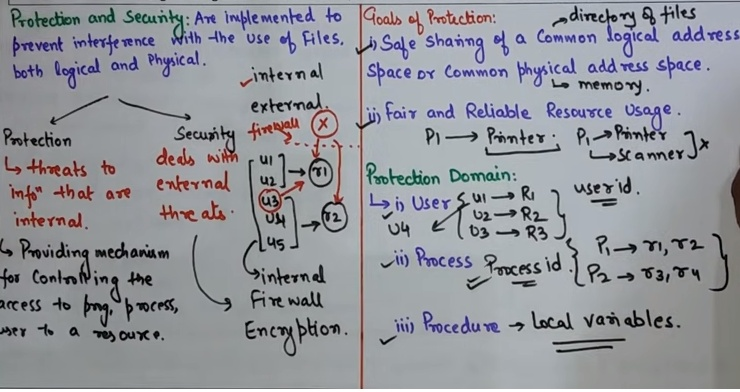 Protection and Security: Are implemented to
prevent interference with the use of Files.
both logical and Physical.
internal
external.
firewall
X
Protection
↳ threats to
infoⁿ that are
internal.
↳ Providing mechanism
for Controlling the
access to prog, process,
user to a resource.
Security
deals with
external
threats.
u1
u2
u3
u4
u5
r1
r2
internal
Firewall
Encryption.
Goals of Protection:
directory of files
i) Safe sharing of a Common logical address
Space or Common physical address space.
↳ memory.
ii) Fair and Reliable Resource Usage.
P1 → Printer. P1 → Printer
↳ Scanner] x
Protection Domain:
↳ i) User { u1 → R1
u2 → R2
U3 → R3 }
U4
user id.
ii) Process Process id. { P1 → r1, r2
P2 → r3, r4 }
iii) Procedure → Local variables.